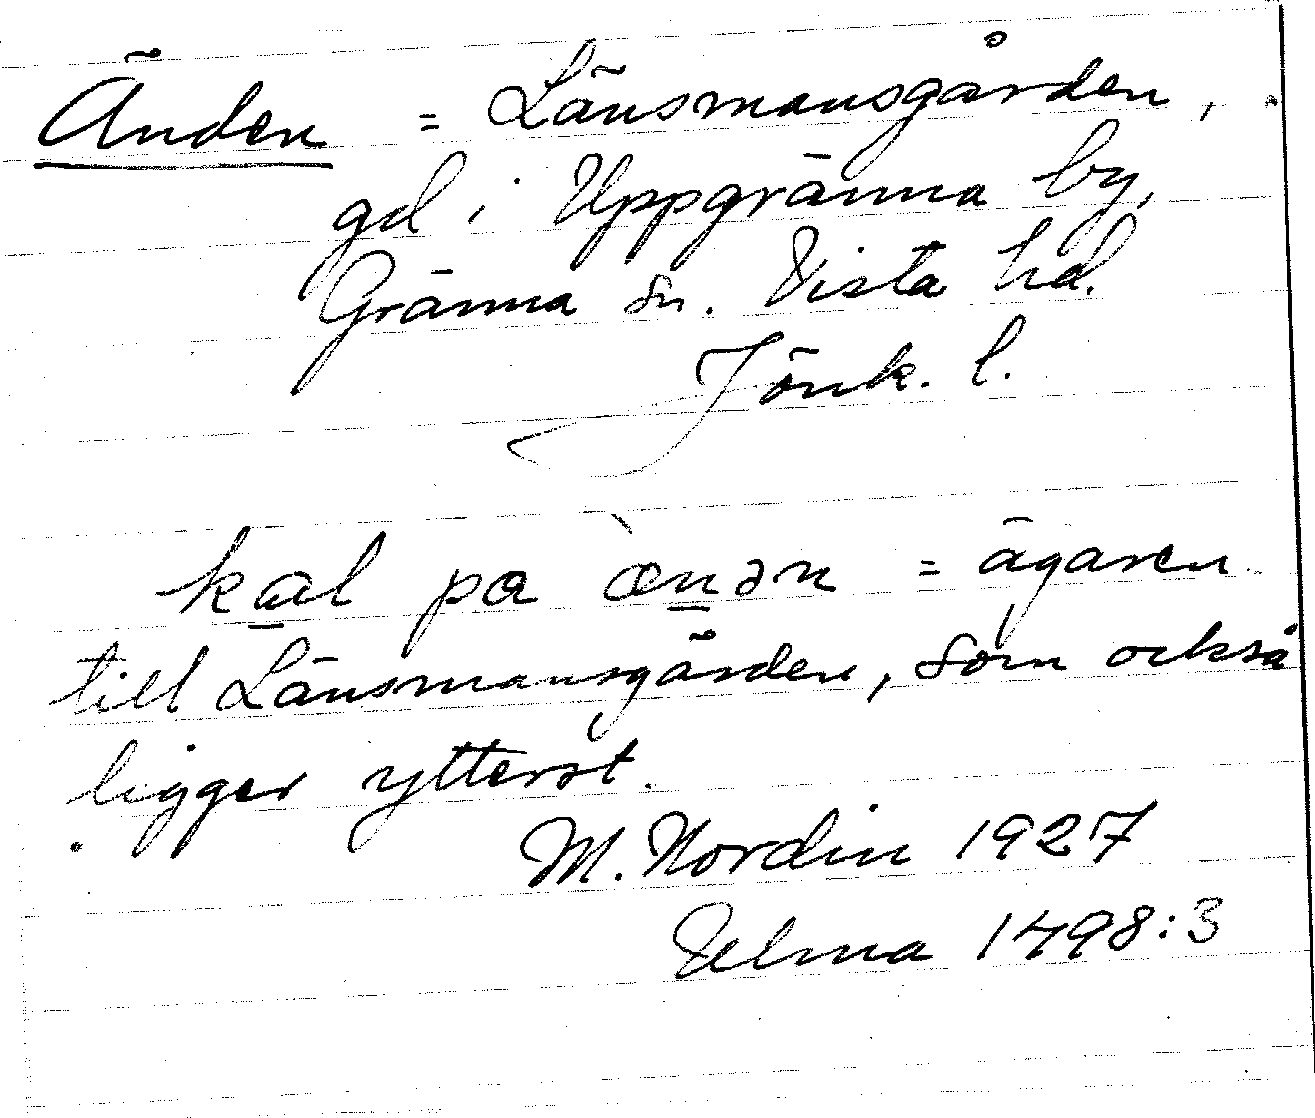 Änden = Länsmansgården,
gd i Uppgränna by,
Gränna sn. Vista hd.
Jönk. l.
kal pa ænən = ägaren
till Länsmansgården, som också
ligger ytterst.
M. Nordin 1927
Ulma 1498:3